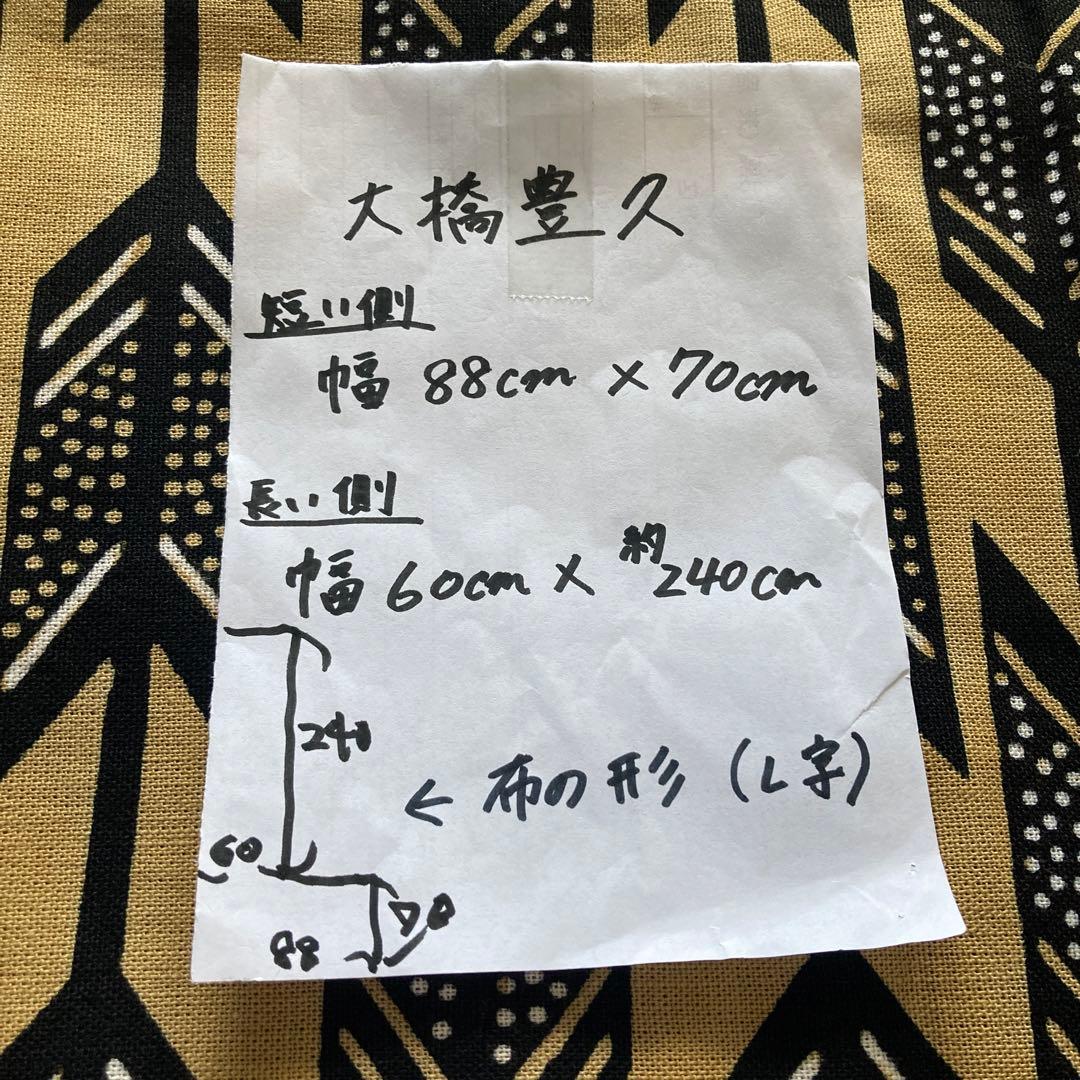 大橋豊久
短い側
幅 88cm × 70cm
長い側
幅 60cm × 約240cm
240
← 布の形 (L字)
60
70
88